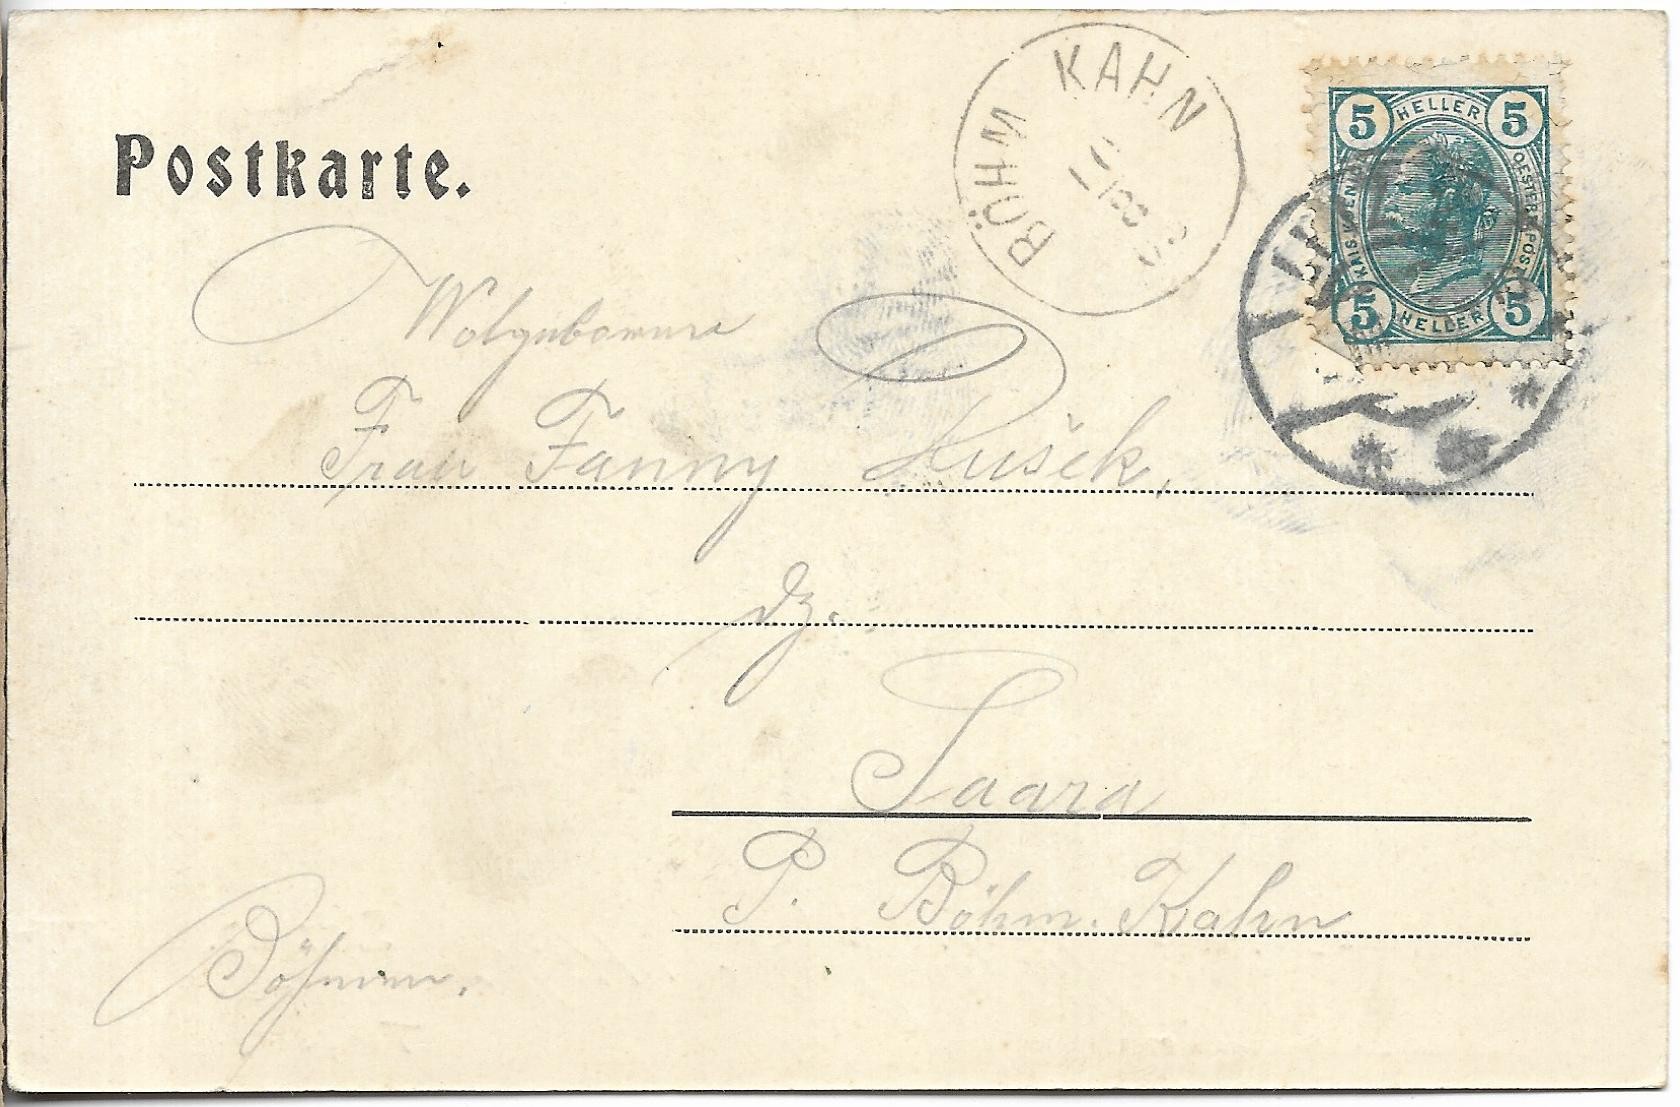 Postkarte.
BÖHM KAHN
5 HELLER 5
KAIS. KOEN. OESTERR. POST
5 HELLER 5
Wolgeborene
Frau Fanny Rušek,
dz.
Saara
P. Böhm. Kahn
Böhmen.